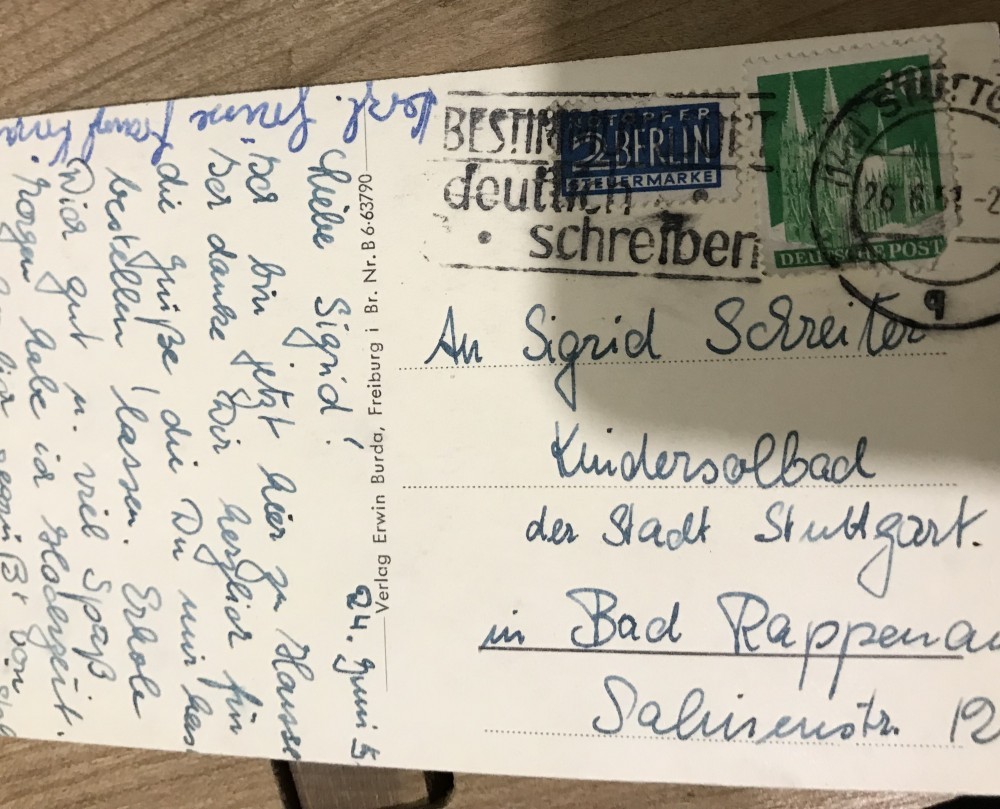 BESTIMMUNGSORT
deutlich
schreiben
NOTOPFER
2 BERLIN
STEUERMARKE
DEUTSCHE POST
(14a) STUTTG
26.6.51 -2
q
An Sigrid Schreiter
Kindersolbad
der Stadt Stuttgart.
in Bad Rappenau
Salinenstr. 12
Verlag Erwin Burda, Freiburg i Br. Nr. B 6-63790
24. Juni 5
Liebe Sigrid!
Ich bin jetzt hier zu Hause
Ich danke Dir herzlich für
die Grüße die Du mir has
bestellen lassen. Erhole
Dich gut u. viel Spaß
Morgen habe ich
von
Herzl. Grüsse